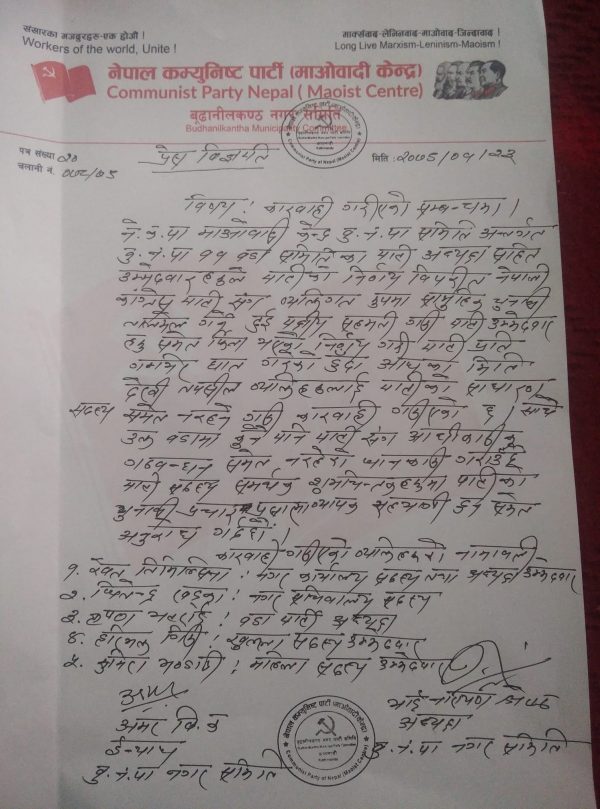 संसारका मजदुरहरु-एक होऔं !
Workers of the world, Unite !
मार्क्सवाद-लेनिनवाद-माओवाद-जिन्दावाद !
Long Live Marxism-Leninism-Maoism !
नेपाल कम्युनिष्ट पार्टी (माओवादी केन्द्र)
Communist Party Nepal ( Maoist Centre)
बुढानीलकण्ठ नगर समिति
Budhanilkantha Municipality Committee
पत्र संख्या
चलानी नं. ०७४/७५
प्रेस विज्ञप्ति
मिति : २०७४/०१/२३
विषय : कारवाही गरीएको सम्बन्धमा ।
ने.क.पा माओवादी केन्द्र बु.नं.पा समिति अन्तर्गत
बु.नं.पा ११ वडा समितिका पार्टी अध्यक्ष सहित
उम्मेदवारहरुले पार्टीको निर्णय विपरीत नेपाली
कांग्रेस पार्टी संग व्यक्तिगत रुपमा सामुहिक चुनावी
तालमेल गर्ने दुई पक्षीय सहमती गरी पार्टी उम्मेदवार
हरु समेत फिर्ता गर्ने निर्णय गरी पार्टी प्रति
गम्भीर घात गरेको हुँदा आजका मिति
देखी तपसील व्यक्तिहरुलाई पार्टीको साधारण
सदस्य समेत नरहने गरी कारवाही गरीएको छ । साथै
उक्त वडामा कुनै पनि पार्टी संग आधीकारीक
गठबन्धन समेत नरहेको जानकारी गराउँदै
पार्टी सदस्य समर्थक शुभचिन्तकहरुमा पार्टीको
चुनावी प्रचार प्रसारमा व्यापक सहभागी हुन समेत
अनुरोध गर्दछौं ।
कारवाही गरीएको व्यक्तिहरुको नामावली
१. : नगर कार्यालय सदस्य तथा अध्यक्ष उम्मेदवार
२. खड्का : नगर सचिवालय सदस्य
३. भट्टराई : वडा पार्टी अध्यक्ष
४. गिरी : खुल्ला सदस्य उम्मेदवार
५. भण्डारी : महिला सदस्य उम्मेदवार
अमर वि.क
ईन्चार्ज
बु.नं.पा नगर समिति
अध्यक्ष
बु.नं.पा नगर समिति
नेपाल कम्युनिष्ट पार्टी (माओवादी केन्द्र)
Communist Party of Nepal (Maoist Centre)